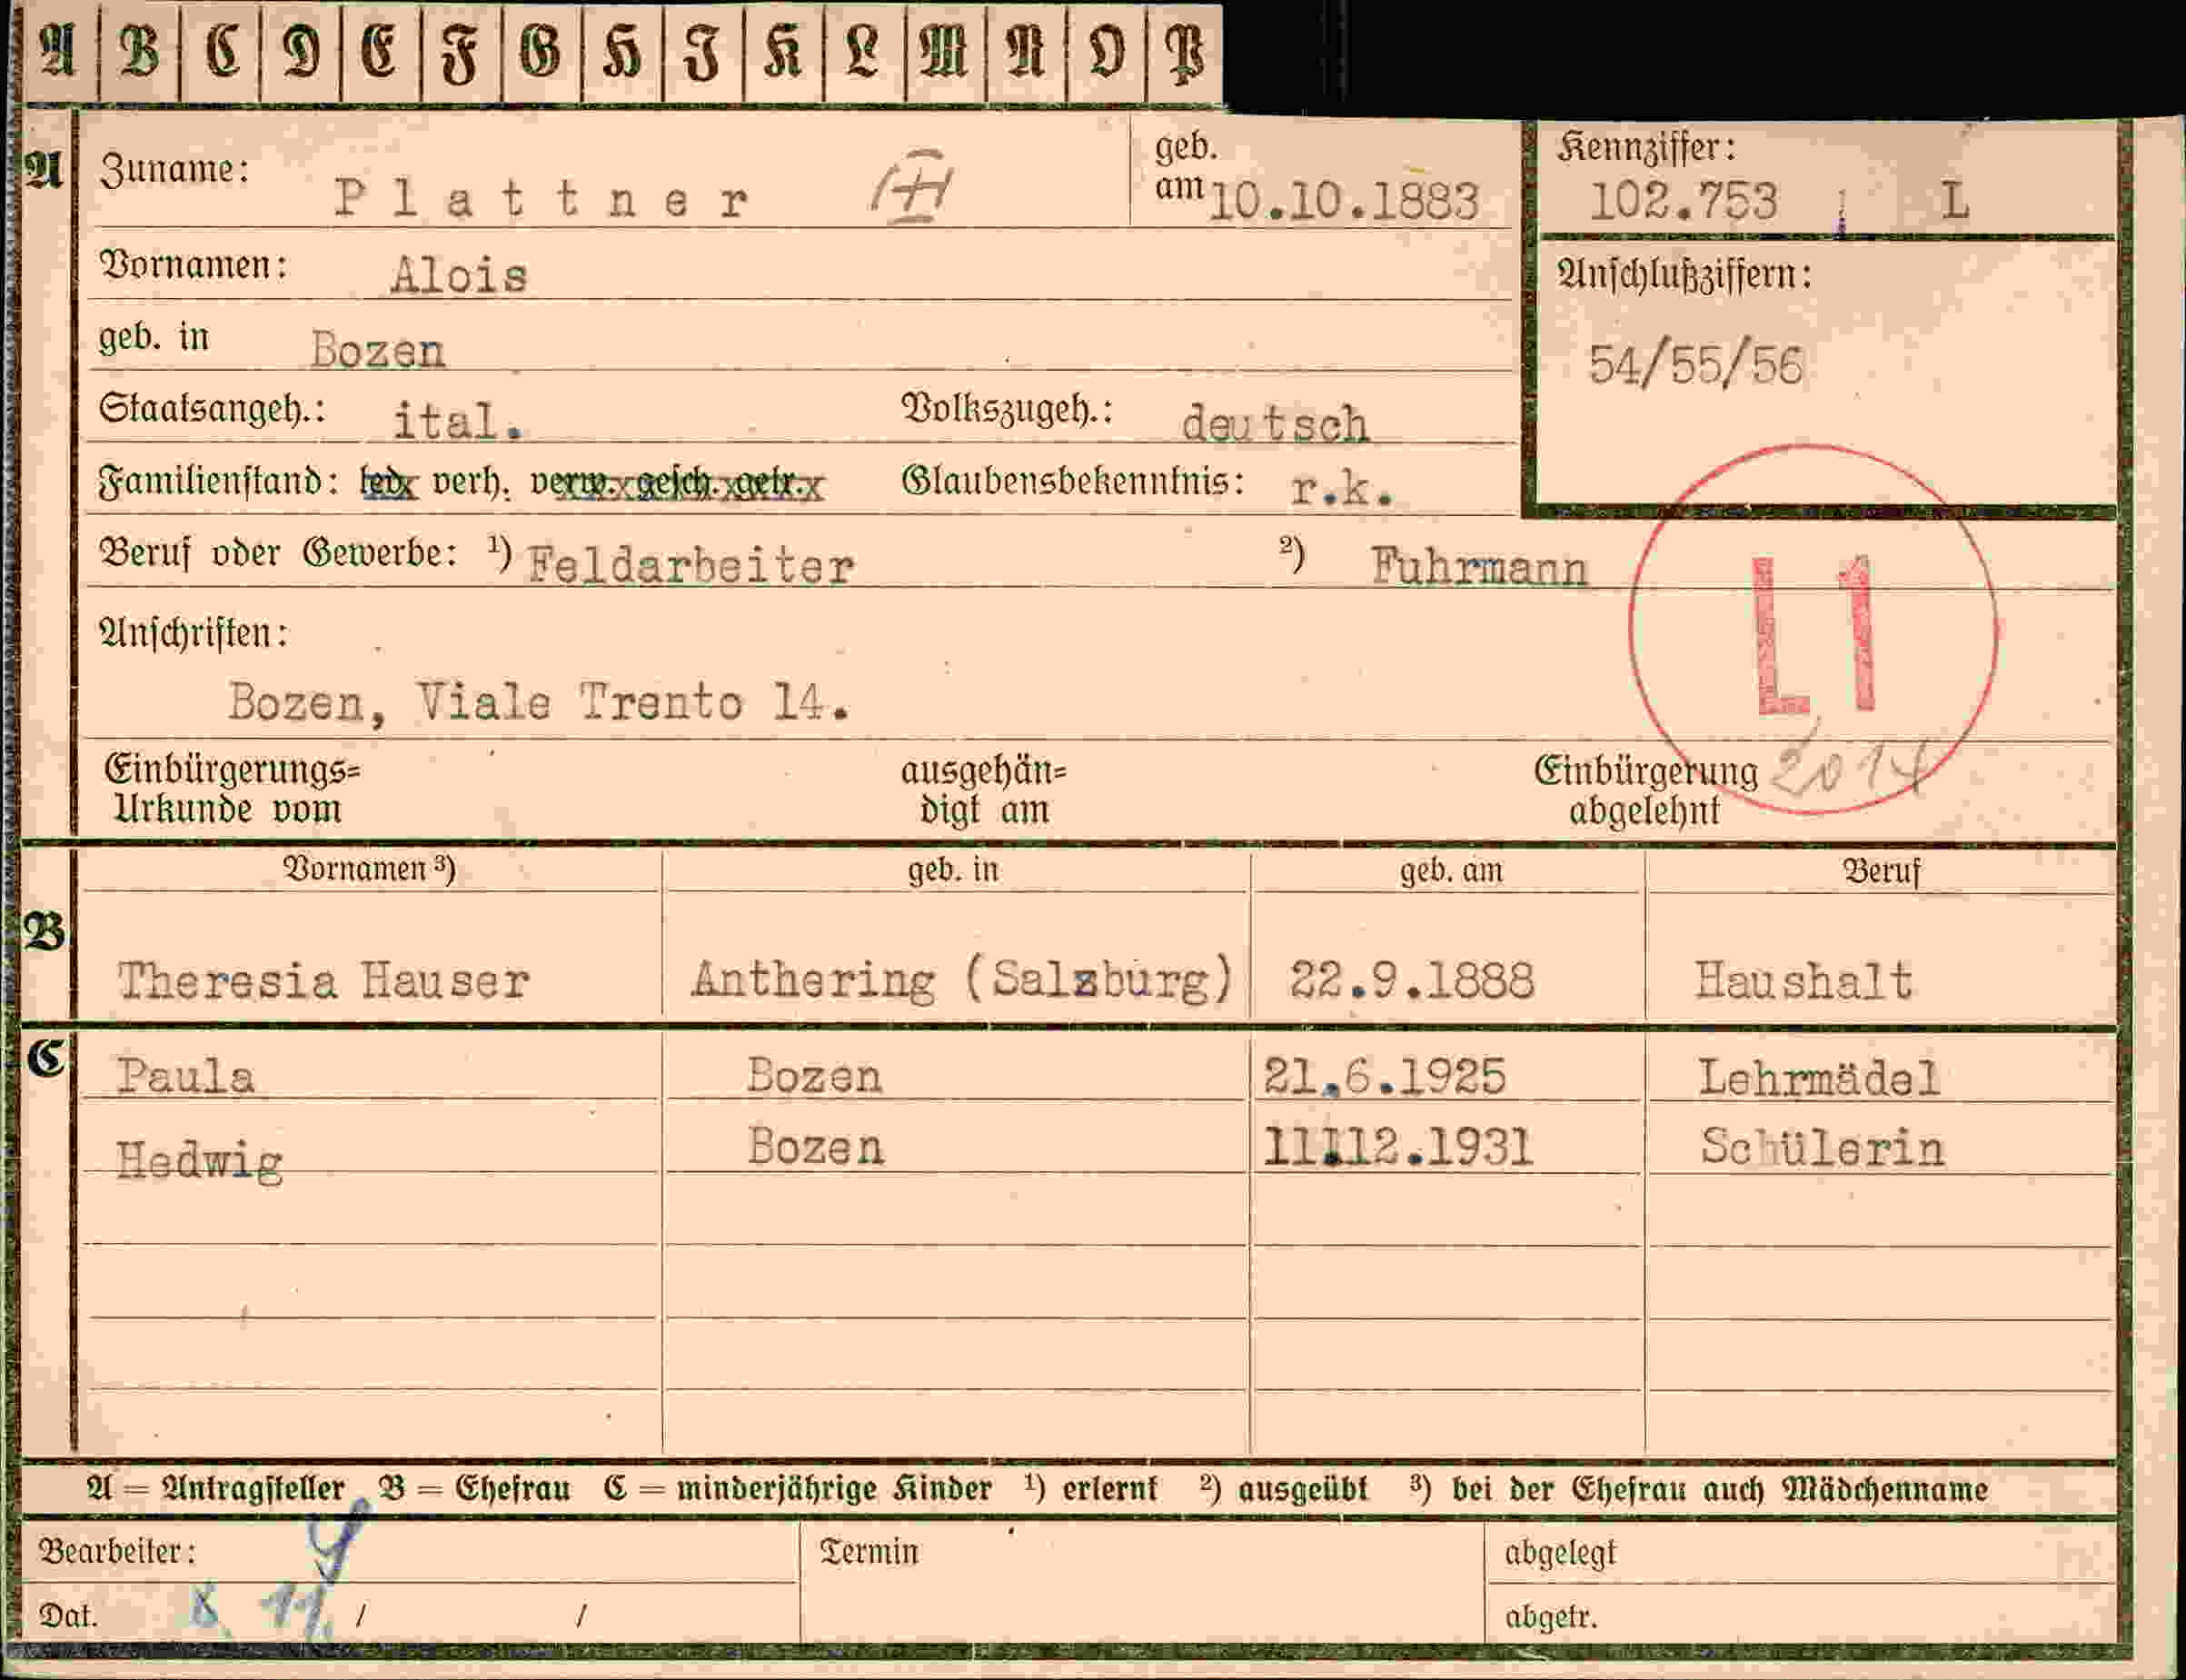 A B C D E F G H I K L M N O P
A Zuname: Plattner geb. am 10.10.1883 Kennziffer: 102.753 L
Vornamen: Alois Anschlußziffern:
geb. in Bozen 54/55/56
Staatsangeh.: ital. Volkszugeh.: deutsch
Familienstand: led. verh. verw. gesch. getr. Glaubensbekenntnis: r.k.
Beruf oder Gewerbe: ¹) Feldarbeiter ²) Fuhrmann
L1
Anschriften:
Bozen, Viale Trento 14.
Einbürgerungs= ausgehän= Einbürgerung
Urkunde vom digt am abgelehnt
Vornamen ³) geb. in geb. am Beruf
B Theresia Hauser Anthering (Salzburg) 22.9.1888 Haushalt
C Paula Bozen 21.6.1925 Lehrmädel
Hedwig Bozen 11.12.1931 Schülerin
A = Antragsteller B = Ehefrau C = minderjährige Kinder ¹) erlernt ²) ausgeübt ³) bei der Ehefrau auch Mädchenname
Bearbeiter: Termin abgelegt
Dat. / / abgetr.